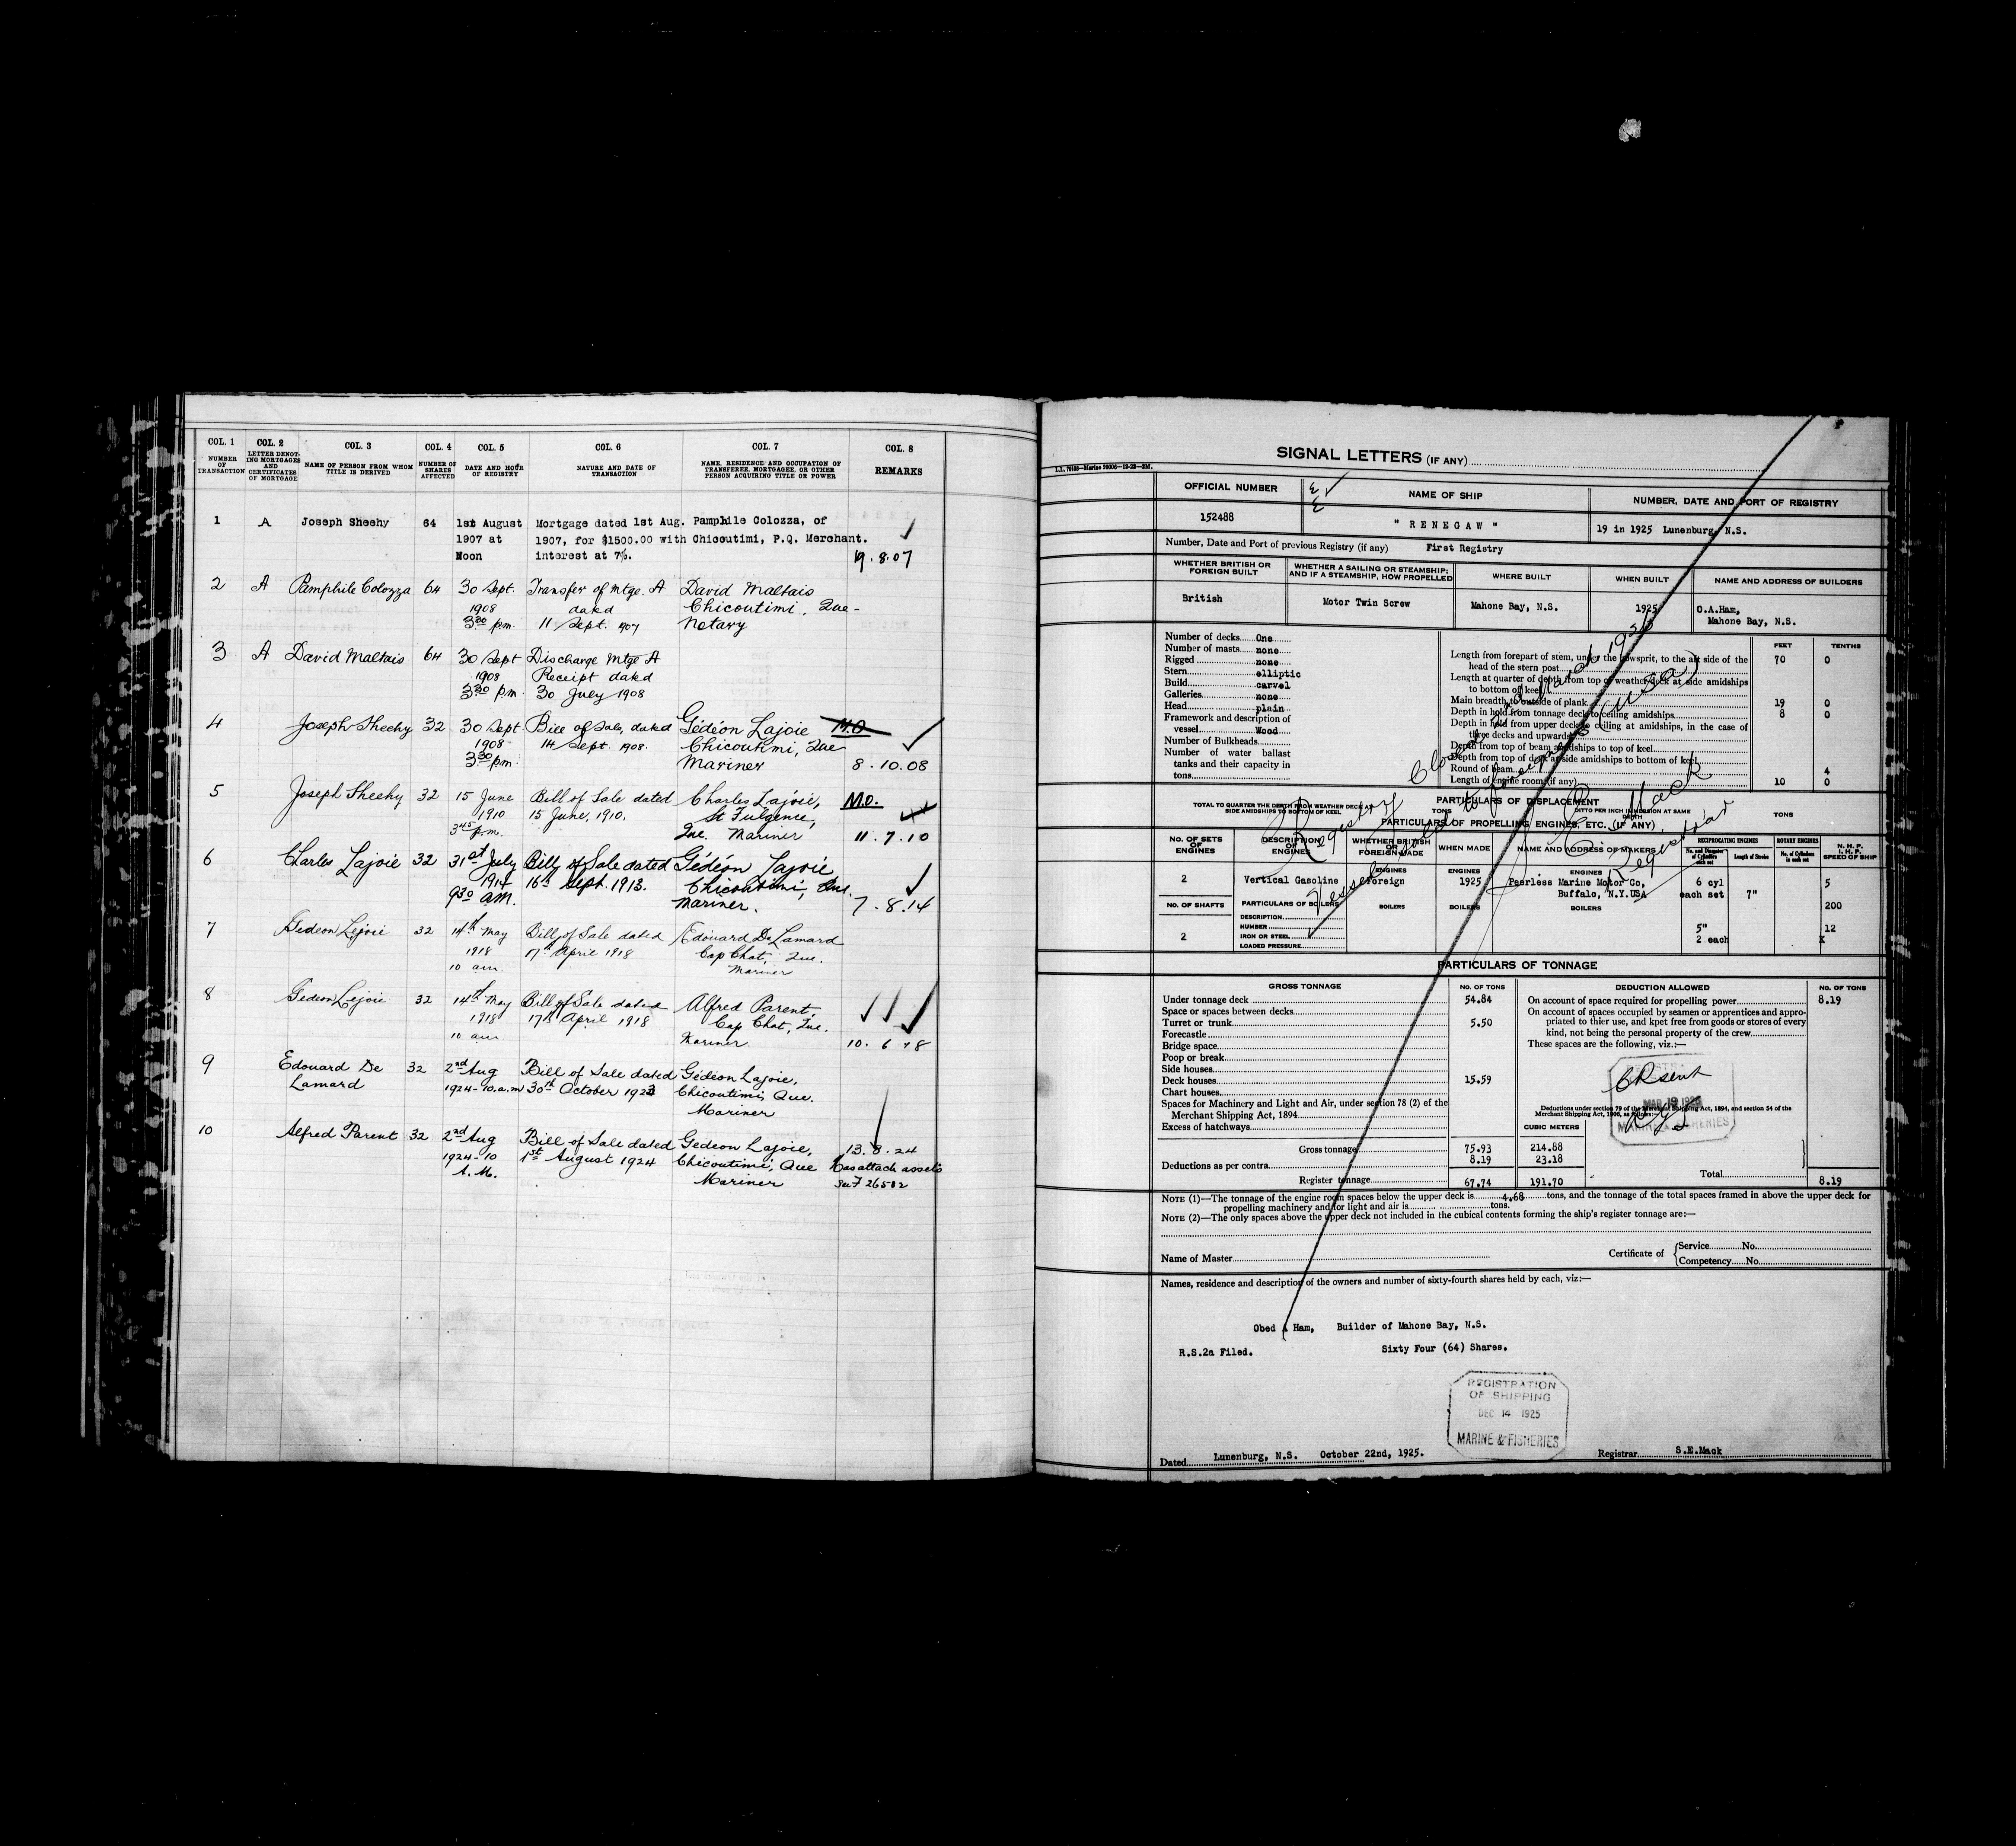 COL. 1 COL. 2 COL. 3 COL. 4 COL. 5 COL. 6 COL. 7 COL. 8
NUMBER OF TRANSACTION
LETTER DENOT-ING MORTGAGES AND CERTIFICATES OF MORTGAGE
NAME OF PERSON FROM WHOM TITLE IS DERIVED
NUMBER OF SHARES AFFECTED
DATE AND HOUR OF REGISTRY
NATURE AND DATE OF TRANSACTION
NAME, RESIDENCE AND OCCUPATION OF TRANSFEREE, MORTGAGEE, OR OTHER PERSON ACQUIRING TITLE OR POWER
REMARKS
1 A Joseph Sheehy 64 1st August Mortgage dated 1st Aug. Pamphile Colozza, of
1907 at 1907, for $1500.00 with Chicoutimi, P.Q. Merchant.
Noon interest at 7%. 19.8.07
2 A Pamphile Colozza 64 30 Sept. Transfer of Mtge. A David Maltais
1908 dated Chicoutimi, Que-
3.30 p.m. 11 Sept. 1907 Notary
3 A David Maltais 64 30 Sept Discharge Mtge A
1908 Receipt dated
3.30 p.m. 30 July 1908
4 Joseph Sheehy 32 30 Sept Bill of Sale, dated Gédéon Lajoie M.O.
1908 14 Sept. 1908. Chicoutimi, Que
3.30 p.m. Mariner 8.10.08
5 Joseph Sheehy 32 15 June Bill of Sale dated Charles Lajoie, M.O.
1910 15 June, 1910. St Fulgence,
3.45 p.m. Que. Mariner 11.7.10
6 Charles Lajoie 32 31st July Bill of Sale dated Gédéon Lajoie
1914 16th Sept. 1913. Chicoutimi, Que.
9.30 a.m. Mariner. 7.8.14
7 Gedeon Lejoie 32 14th May Bill of Sale dated Edouard De Lamard
1918 17th April 1918 Cap Chat, Que.
10 am. Mariner
8 Gedeon Lejoie 32 14th May Bill of Sale dated Alfred Parent,
1918 17th April 1918 Cap Chat, Que.
10 am Mariner. 10.6.18
9 Edouard De 32 2nd Aug Bill of Sale dated Gédéon Lajoie,
Lamard 1924-10.a.m 30th October 1923 Chicoutimi, Que.
Mariner
10 Alfred Parent 32 2nd Aug Bill of Sale dated Gedeon Lajoie, 13.8.24
1924-10 1st August 1924 Chicoutimi, Que
A.M. Mariner 26502
SIGNAL LETTERS (IF ANY)
OFFICIAL NUMBER NAME OF SHIP NUMBER, DATE AND PORT OF REGISTRY
152488 " R E N E G A W " 19 in 1925 Lunenburg, N.S.
Number, Date and Port of previous Registry (if any) First Registry
WHETHER BRITISH OR FOREIGN BUILT
WHETHER A SAILING OR STEAMSHIP; AND IF A STEAMSHIP, HOW PROPELLED
WHERE BUILT WHEN BUILT NAME AND ADDRESS OF BUILDERS
British Motor Twin Screw Mahone Bay, N.S. 1925 O.A.Ham,
Mahone Bay, N.S.
Number of decks One
Number of masts none
Rigged none
Stern elliptic
Build carvel
Galleries none
Head plain
Framework and description of
vessel Wood
Number of Bulkheads
Number of water ballast
tanks and their capacity in
tons
FEET TENTHS
Length from forepart of stem, under the bowsprit, to the aft side of the
head of the stern post 70 0
Length at quarter of depth from top of weather deck at side amidships
to bottom of keel
Main breadth to outside of plank 19 0
Depth in hold from tonnage deck to ceiling amidships 8 0
Depth in hold from upper deck to ceiling at amidships, in the case of
three decks and upwards
Depth from top of beam amidships to top of keel
Depth from top of deck at side amidships to bottom of keel
Round of beam 4
Length of engine room (if any) 10 0
Registry Closed
Vessel sold to foreigners (USA)
S. E. Mack
Registrar
PARTICULARS OF DISPLACEMENT
TOTAL TO QUARTER THE DEPTH FROM WEATHER DECK AT SIDE AMIDSHIPS TO BOTTOM OF KEEL TONS DITTO PER INCH IMMERSION AT SAME DEPTH TONS
PARTICULARS OF PROPELLING ENGINES, ETC. (IF ANY)
NO. OF SETS OF ENGINES DESCRIPTION OF ENGINES WHETHER BRITISH OR FOREIGN MADE WHEN MADE NAME AND ADDRESS OF MAKERS RECIPROCATING ENGINES ROTARY ENGINES N.H.P. I.H.P. SPEED OF SHIP
No. and Diameter of Cylinders each set Length of Stroke No. of Cylinders in each set
ENGINES ENGINES ENGINES
2 Vertical Gasoline Foreign 1925 Peerless Marine Motor Co, 6 cyl 5
Buffalo, N.Y.USA each set 7"
NO. OF SHAFTS PARTICULARS OF BOILERS BOILERS BOILERS BOILERS 200
DESCRIPTION
NUMBER 5" 12
2 IRON OR STEEL 2 each X
LOADED PRESSURE
PARTICULARS OF TONNAGE
GROSS TONNAGE NO. OF TONS DEDUCTION ALLOWED NO. OF TONS
Under tonnage deck 54.84
Space or spaces between decks
Turret or trunk 5.50
Forecastle
Bridge space
Poop or break
Side houses
Deck houses 15.59
Chart houses
Spaces for Machinery and Light and Air, under section 78 (2) of the
Merchant Shipping Act, 1894
Excess of hatchways
On account of space required for propelling power 8.19
On account of spaces occupied by seamen or apprentices and appro-
priated to thier use, and kpet free from goods or stores of every
kind, not being the personal property of the crew
These spaces are the following, viz.:—
CR sent
MAR 19 1926
MARINE & FISHERIES
Deductions under section 79 of the Merchant Shipping Act, 1894, and section 54 of the
Merchant Shipping Act, 1906, as follows:
CUBIC METERS
Gross tonnage 75.93 214.88
Deductions as per contra 8.19 23.18
Total 8.19
Register tonnage 67.74 191.70
NOTE (1)—The tonnage of the engine room spaces below the upper deck is 4.68 tons, and the tonnage of the total spaces framed in above the upper deck for
propelling machinery and for light and air is tons.
NOTE (2)—The only spaces above the upper deck not included in the cubical contents forming the ship's register tonnage are:—
Name of Master
Certificate of Service No.
Competency No.
Names, residence and description of the owners and number of sixty-fourth shares held by each, viz:—
Obed A Ham, Builder of Mahone Bay, N.S.
R.S.2a Filed. Sixty Four (64) Shares.
REGISTRATION
OF SHIPPING
DEC 14 1925
MARINE & FISHERIES
Dated Lunenburg, N.S. October 22nd, 1925. Registrar S.E.Mack